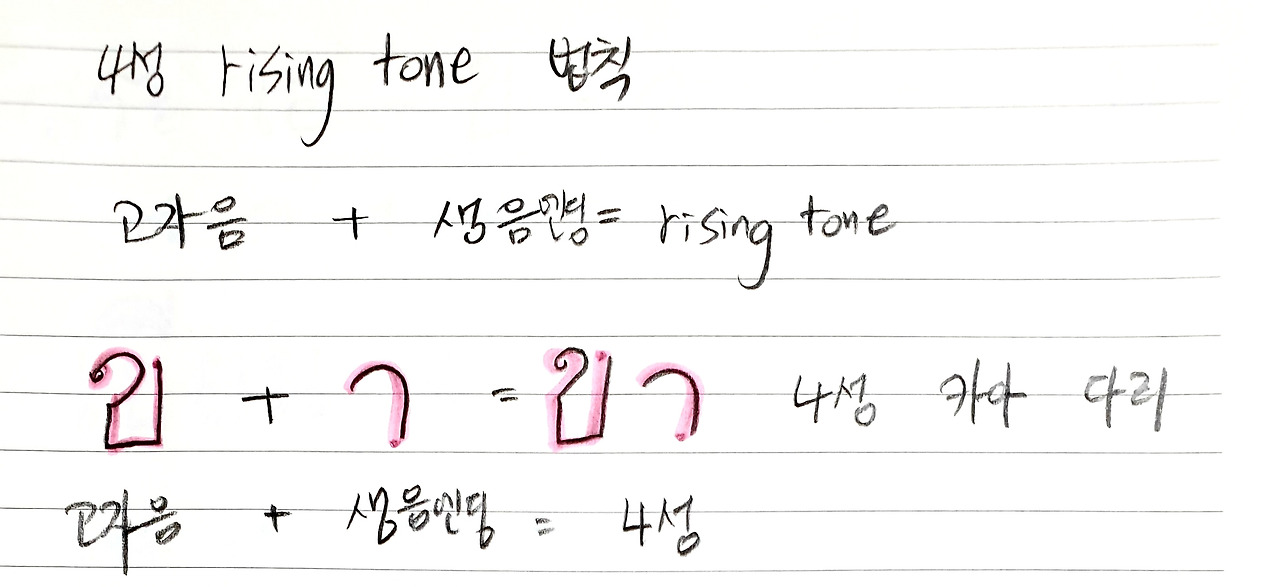 4성 rising tone 법칙
고자음 + 생음엔딩 = rising tone
ข + า = ขา 4성 카아 다리
고자음 + 생음엔딩 = 4성